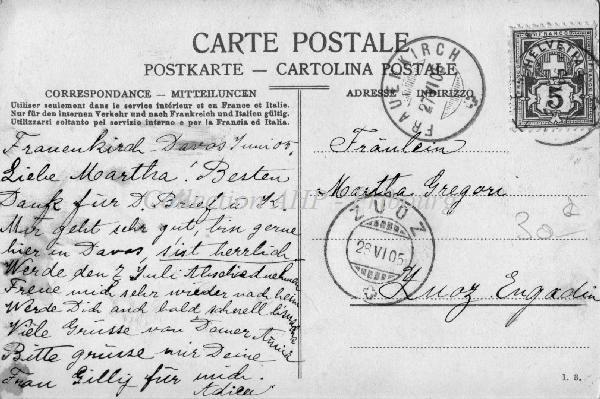 CARTE POSTALE
POSTKARTE — CARTOLINA POSTALE
CORRESPONDANCE - MITTEILUNGEN
Utiliser seulement dans le service intérieur et en France et Italie.
Nur für den internen Verkehr und nach Frankreich und Italien gültig.
Utilizzarsi soltanto pel servizio interno e per la Francia ed Italia.
ADRESSE — INDIRIZZO
Frauenkirch Davos Juni 05,
Liebe Martha! Besten
Dank für D. Brief u. K.
Mir geht sehr gut, bin gerne
hier in Davos, s'ist herrlich
Werde den 2 Juli Abschied nehmen
Freue mich sehr wieder nach
Werde Dich auch bald schnell
Viele Grüsse von Anna
Bitte grüsse mir Deine
Frau Gillig für mich.
Adieu
Fräulein
Martha Gregori
Zuoz Engadin
FRAUENKIRCH
27.VI.05
ZUOZ
28 VI 05
FRANCO
HELVETIA
5
30
Collection AHP
1. B.